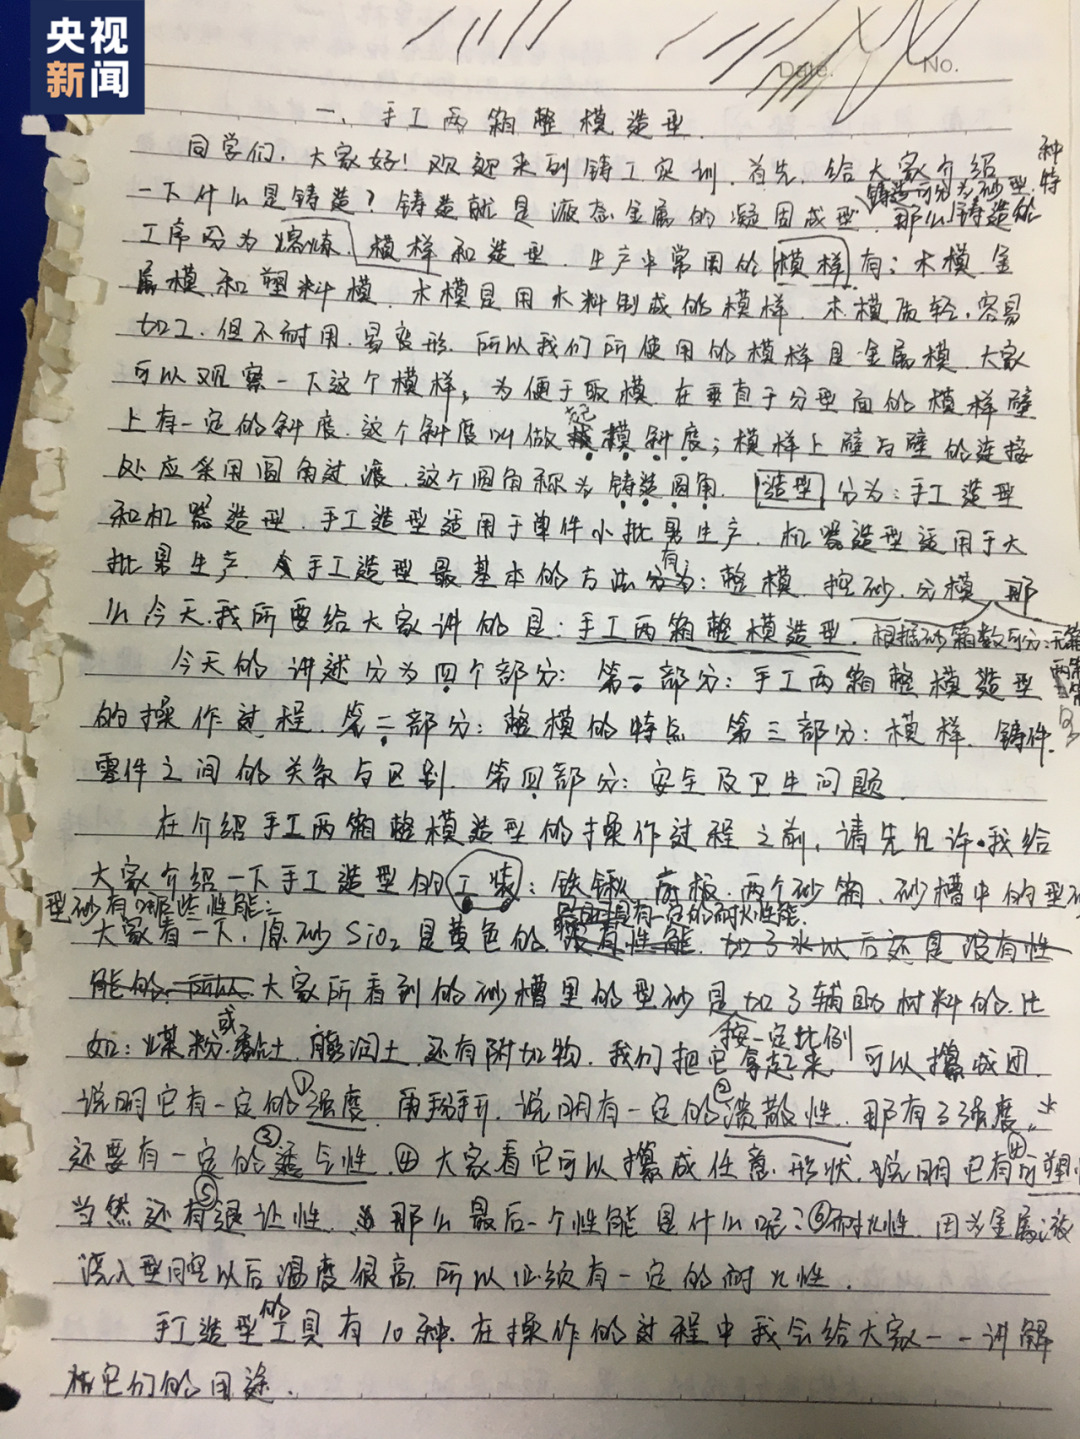 央视
新闻
Date.
No.
一、手工两箱整模造型
同学们，大家好！欢迎来到铸工实训，首先，给大家介绍
一下什么是铸造？铸造就是液态金属的凝固成型，那么铸造的
铸造可分为砂型
种特
工序分为熔炼、模样和造型，生产中常用的模样有：木模、金
属模和塑料模，木模是用木料制成的模样，木模质轻，容易
加工，但不耐用，易变形，所以我们所使用的模样是金属模，大家
可以观察一下这个模样，为便于取模，在垂直于分型面的模样壁
上有一定的斜度，这个斜度叫做起模斜度；模样上壁与壁的连接
处应采用圆角过渡，这个圆角称为铸造圆角，造型分为：手工造型
和机器造型，手工造型适用于单件小批量生产，机器造型适用于大
批量生产，手工造型最基本的方法有：整模、挖砂、分模，那
么今天我所要给大家讲的是：手工两箱整模造型，根据砂箱数可分：无箱
今天的讲述分为四个部分：第一部分：手工两箱整模造型
的操作过程，第二部分：整模的特点，第三部分：模样、铸件、
零件之间的关系与区别，第四部分：安全及卫生问题，
在介绍手工两箱整模造型的操作过程之前，请先允许我给
大家介绍一下手工造型的工装：铁锹、底板、两个砂箱、砂槽中的型砂
型砂有哪些性能：
具有一定的耐火性能，
大家看一下，原砂SiO₂是黄色的没有性能，加了水以后还是没有性
能的，所以大家所看到的砂槽里的型砂是加了辅助材料的，比
如：煤粉或黏土、膨润土，还有附加物，我们把它拿起来，可以攥成团，
按一定比例
说明它有一定的①强度，再掰开，说明有一定的②溃散性，那有了强度，
还要有一定的③透气性，④大家看它可以攥成任意形状，说明它有④可塑
当然还有⑤退让性，那么最后一个性能是什么呢？⑥耐火性，因为金属液
浇入型腔以后温度很高，所以必须有一定的耐火性，
手工造型的工具有10种，在操作的过程中我会给大家一一讲解
它们的用途，